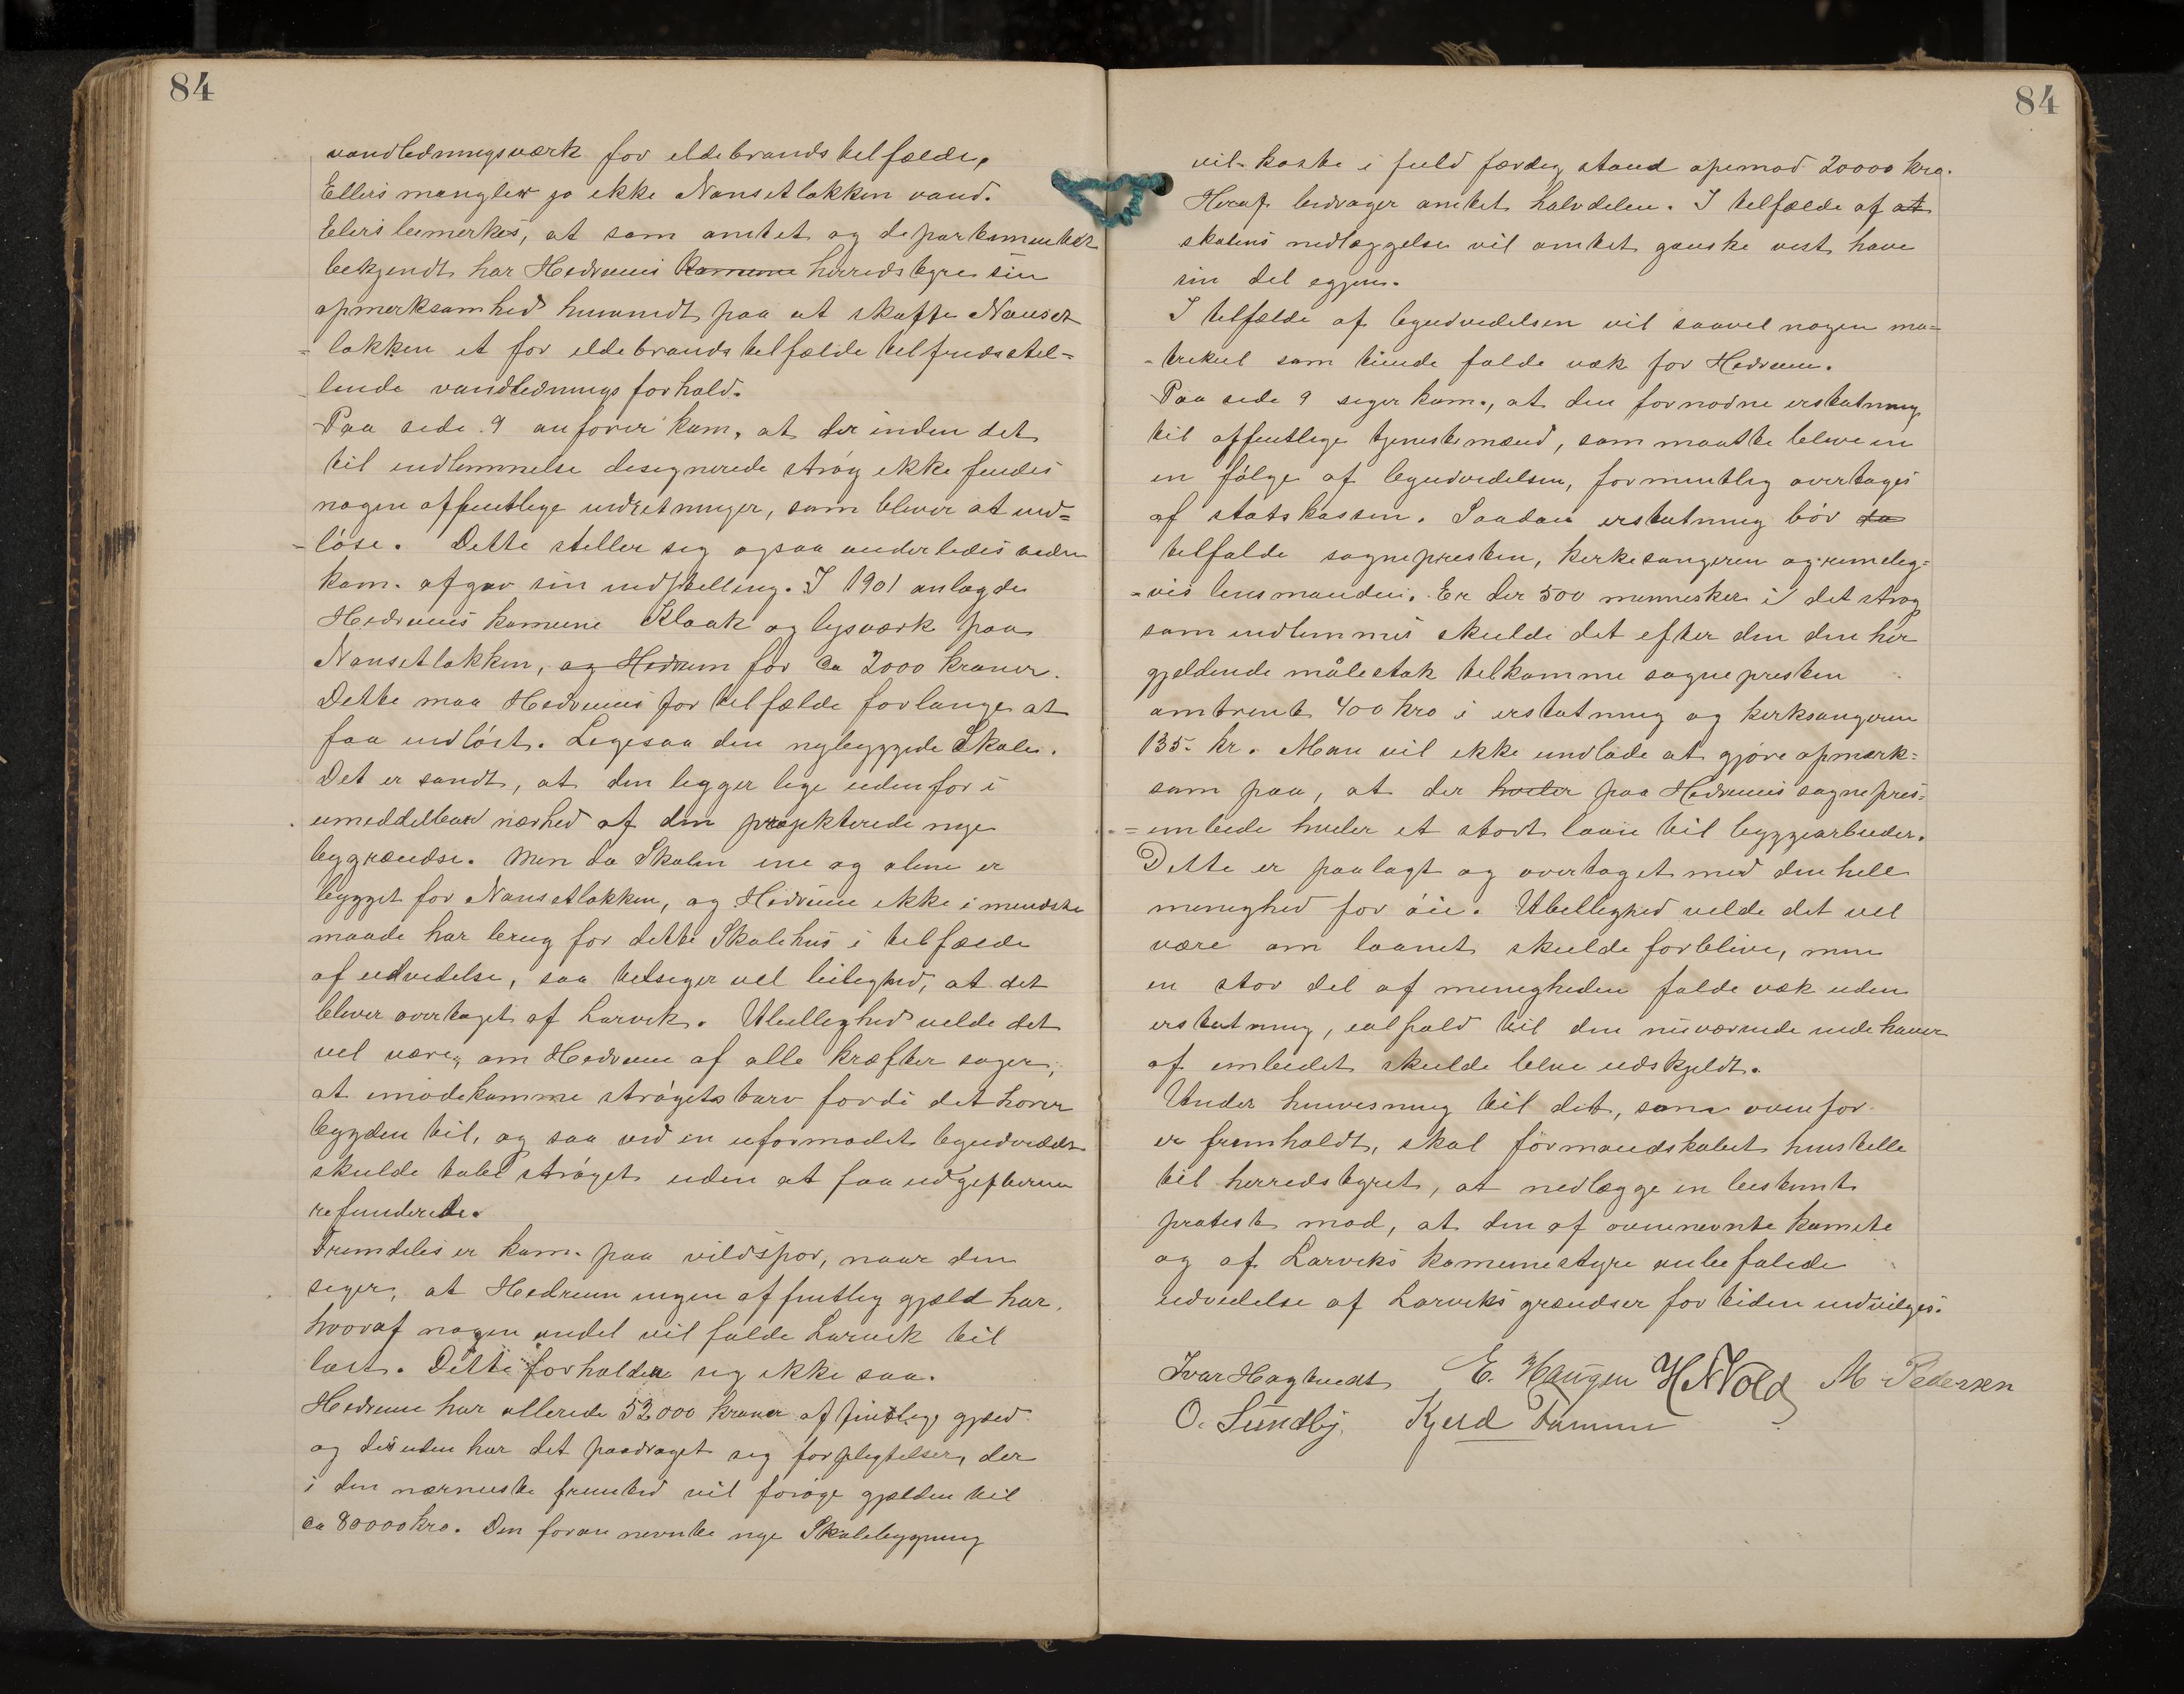 84
vandledningsværk for eldebrandstilfælde.
Ellers mangler jo ikke Nansetløkken vand.
Ellers bemerkes, at som amtet og departementet
bekjendt har Hedrums komune herredstyre sin
opmerksamhed henvendt paa at skaffe Nanset
=løkken et for eldebrandstilfælde tilfredsstil=
lende vandlednings forhold.
Paa side 9 anfører kom. at der inden det
til indlemmelse designerede strøg ikke findes
nogen offentlige indretninger, som bliver at ind=
=løse. Dette stiller sig ogsaa anderledes siden
kom. afgav sin indstilling. I 1901 anlagde
Hedrums komune Kloak og lysværk paa
Nansetløkken, og Hedrum for ca 2000 kroner.
Dette maa Hedrums for tilfælde forlange at
faa indløst. Ligesaa den nybyggede Skole.
Det er sandt, at den ligger lige udenfor i
umeddelbar nærhed af den projekterede nye
bygrændse. Men da Skolen ene og alene er
bygget for Nansetløkken, og Hedrum ikke i mindste
maade har brug for dette Skolehus i tilfælde
af udvidelse, saa tilsiger vel billighed, at det
bliver overtaget af Larvik. Ubillighed vilde det
vel være, om Hedrum af alle kræfter søger,
at imødekomme strøgets tarv fordi det hører
bygden til, og saa ved en uformodet byudvidelse
skulde tabe strøget uden at faa udgifterne
refunderede.
Fremdeles er kom. paa vildspor, naar den
siger, at Hedrum ingen offentlig gjæld har,
hvoraf nogen andel vil falde Larvik til
last. Dette forholder sig ikke saa.
Hedrum har allerede 52000 kroner offentlig gjæld
og desuden har det paadraget sig forpligtelser, der
i den nærmeste fremtid vil forøge gjælden til
ca 80000 kro. Den foran nevnte nye Skolebygning
84
vil koste i fuld færdig stand opimod 20000 kro.
Heraf bidrager amtet halvdelen. I tilfælde af at
skolens nedlæggelse vil amtet ganske vist have
sin del igjen.
I tilfælde af byudvidelsen vil saavel nogen ma=
=trikul som tiende falde væk for Hedrum.
Paa side 9 siger kom., at den fornødne erstatning
til offentlige tjenestemænd, som maatte blive en
en følge af byudvidelsen, formentlig overtages
af statskassen. Saadan erstatning bør da
tilfalde sognepresten, kirkesangeren og rimelig=
=vis lensmanden. Er der 500 mennesker i det strøg
som indlemmes skulde det efter den den her
gjeldende målestok tilkomme sognepresten
omtrent 400 kro i erstatning og kirksangeren
135 kr. Man vil ikke undlade at gjøre opmerk=
som paa, at der hviler paa Hedrums sognepres=
=embede hviler et stort laan til byggearbeider.
Dette er paalagt og overtaget med den hele
menighed for øie. Ubillighed vilde det vel
være om laanet skulde forblive, men
en stor del af menigheden falde væk uden
erstatning, ialfald til den nuværende indehaver
af embedet skulde blive udskjeldt.
Under henvisning til det, som ovenfor
er fremholdt, skal formandskabet henstille
til herredstyret, at nedlægge en bestemt
protest mod, at den af ovennevnte komite
og af Larviks komunestyre anbefalede
udvidelse af Larviks grændser for tiden indvilges.
Ivar Hagtvedt E. Haugen H N Vold M Pedersen
O. Sundby